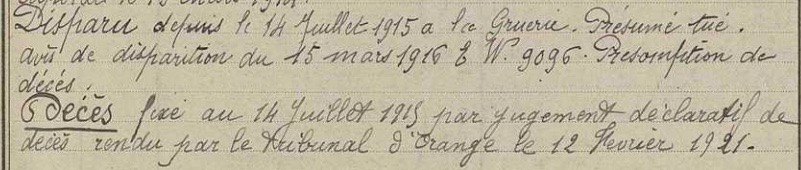 Disparu depuis le 14 Juillet 1915 a la Gruerie. Présumé tué.
avis de disparition du 15 mars 1916 E W. 9096. Présomption de
décés.
Décès fixé au 14 Juillet 1915 par jugement déclaratif de
décès rendu par le tribunal d'Orange le 12 Février 1921.